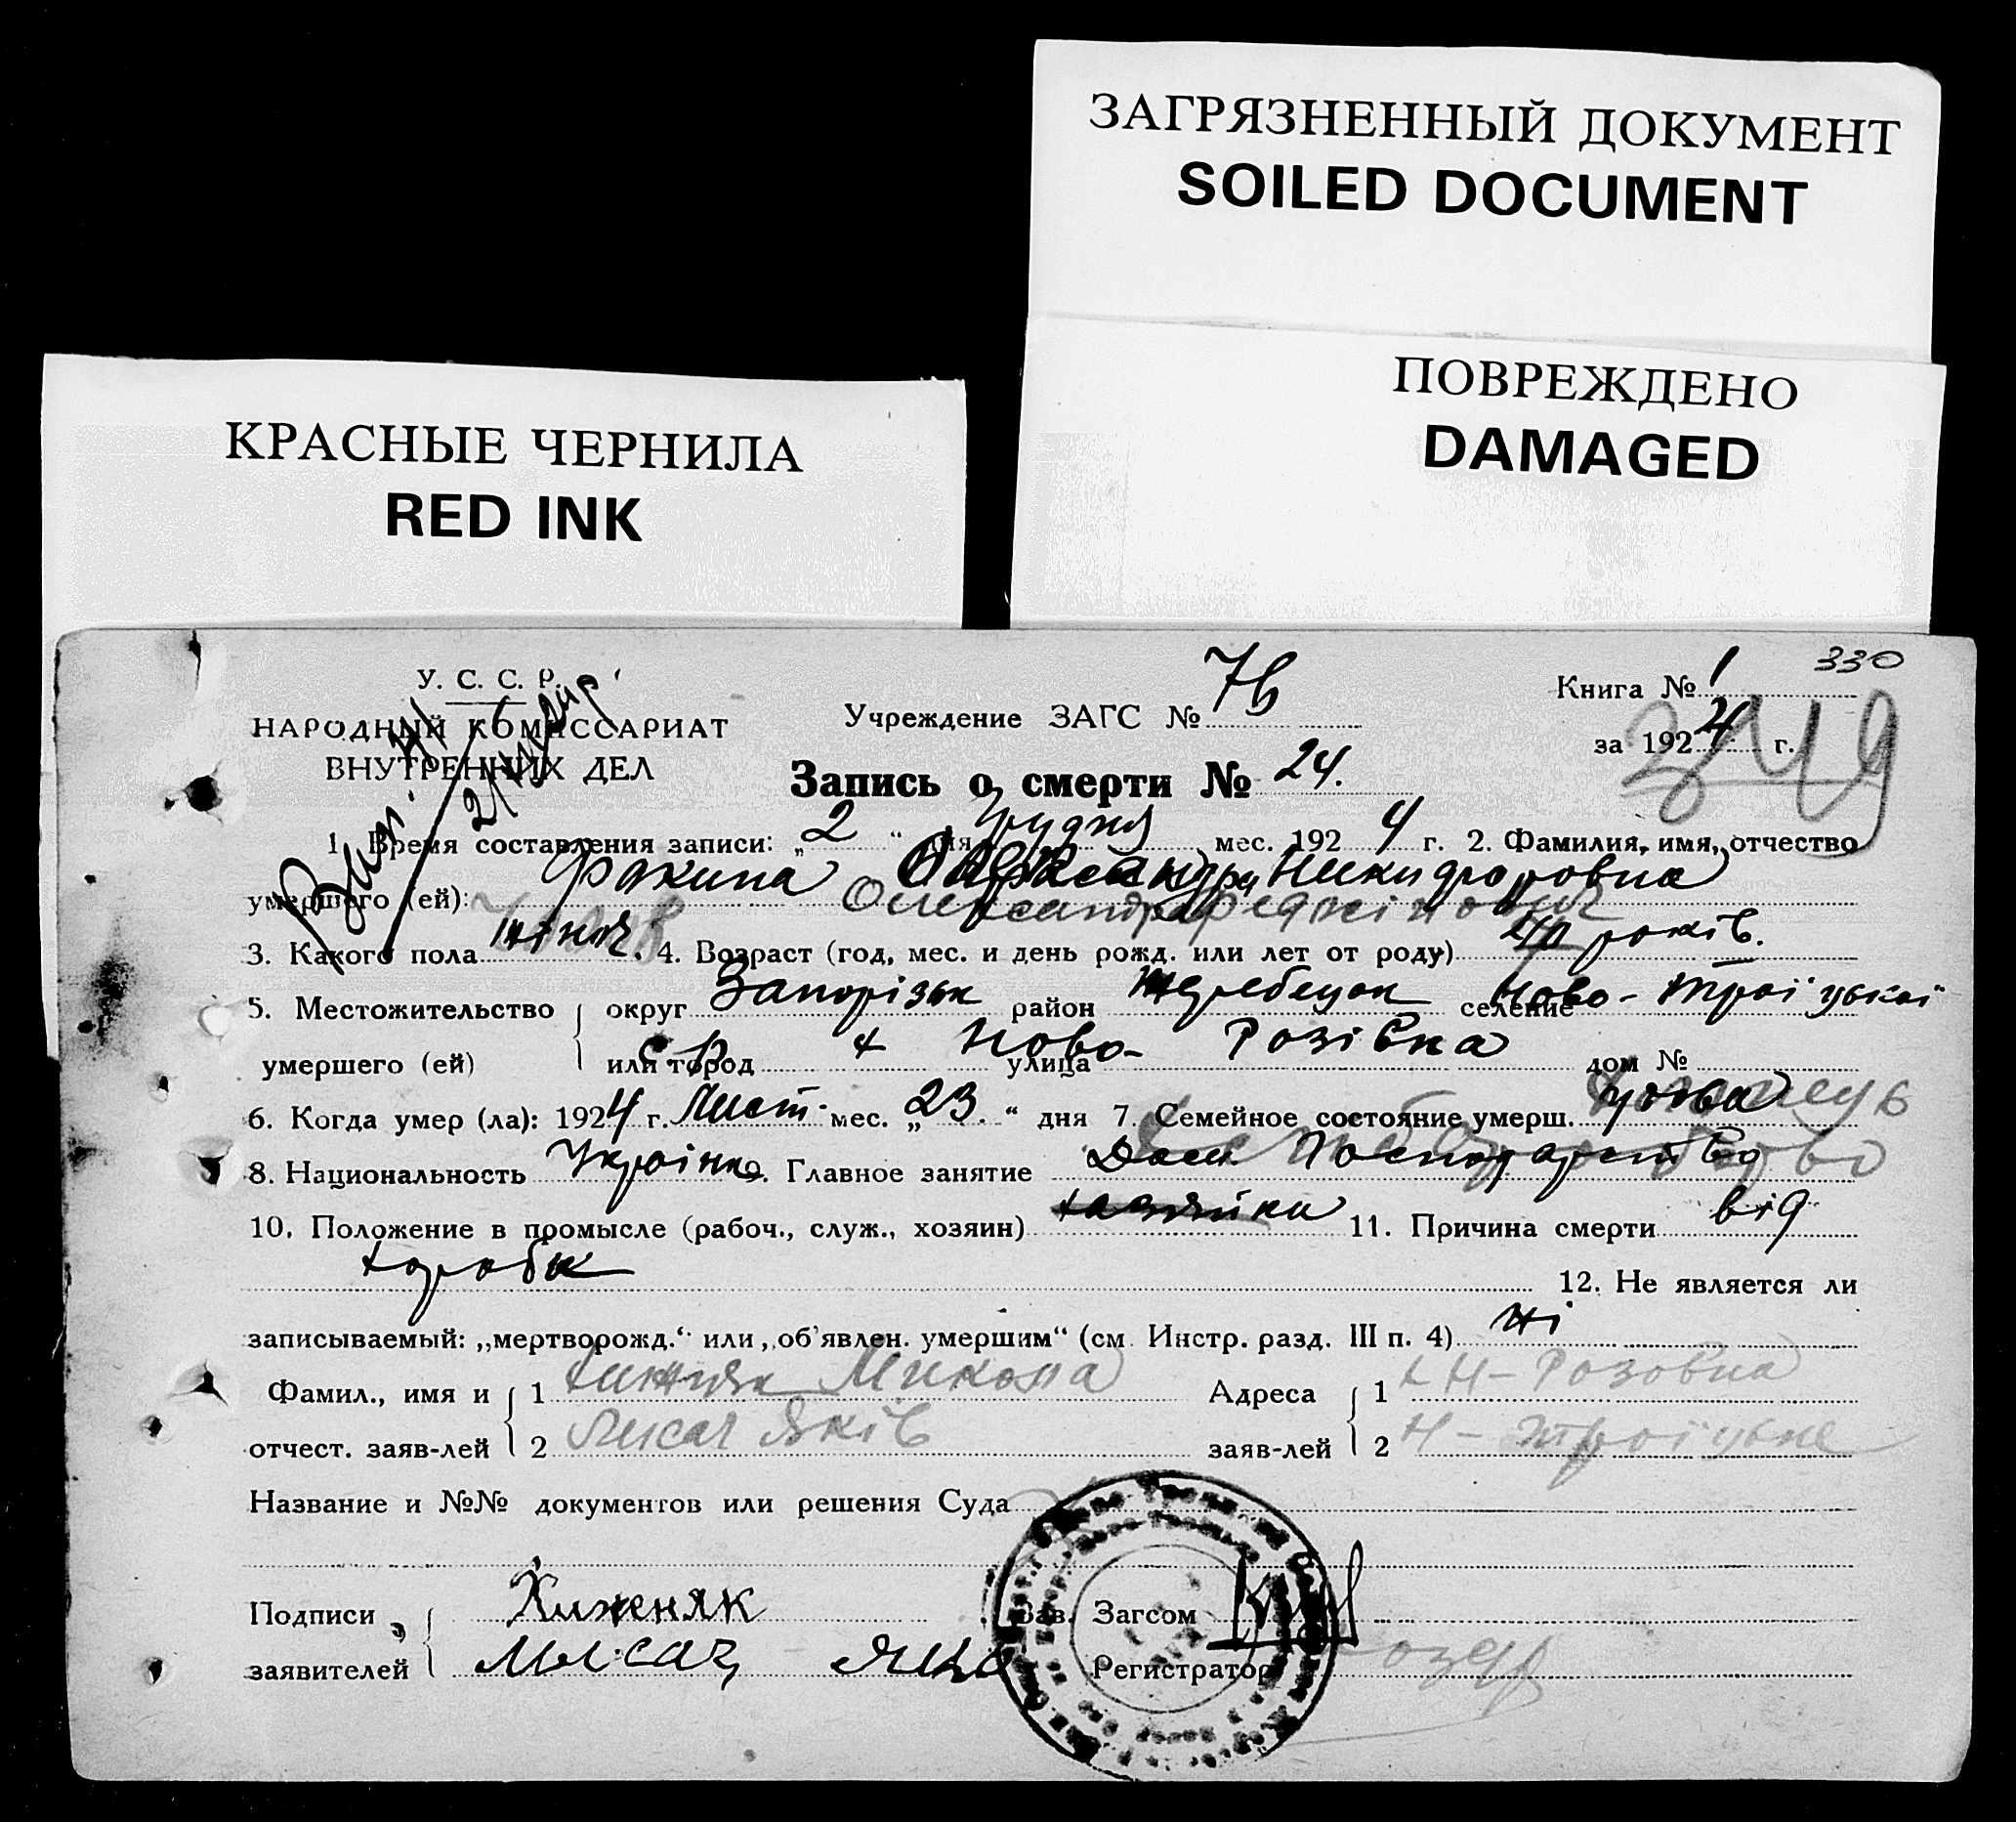 ЗАГРЯЗНЕННЫЙ ДОКУМЕНТ
SOILED DOCUMENT
ПОВРЕЖДЕНО
DAMAGED
КРАСНЫЕ ЧЕРНИЛА
RED INK
330
У. С. С. Р.
НАРОДНЫЙ КОМИССАРИАТ
ВНУТРЕННИХ ДЕЛ
Учреждение ЗАГС №
Книга № 1
за 1924 г.
Запись о смерти № 24.
1. Время составления записи: „2“ дня Грудня мес. 1924 г. 2. Фамилия, имя, отчество
умершего (ей): Никифоровна
Олександра
3. Какого пола 4. Возраст (год, мес. и день рожд. или лет от роду) років.
5. Местожительство округ Запорізьк район Жеребецьк селение Ново-Троїцької
умершего (ей) или город х Ново-улица Розівка дом №
6. Когда умер (ла): 1924 г. Лист. мес. „23.“ дня 7. Семейное состояние умерш.
8. Национальность Українка 9. Главное занятие Дом. Господарство
10. Положение в промысле (рабоч., служ., хозяин) хазяйка 11. Причина смерти від
12. Не является ли
записываемый: „мертворожд.“ или „об’явлен. умершим“ (см. Инстр. разд. III п. 4) ні
Фамил., имя и 1 Хижняк Микола Адреса 1 х Н-Розовка
отчест. заяв-лей 2 Лисач Яків заяв-лей 2 Н-Троїцьке
Название и №№ документов или решения Суда
Подписи Хиженяк Зав. Загсом
заявителей Лысач Регистратор